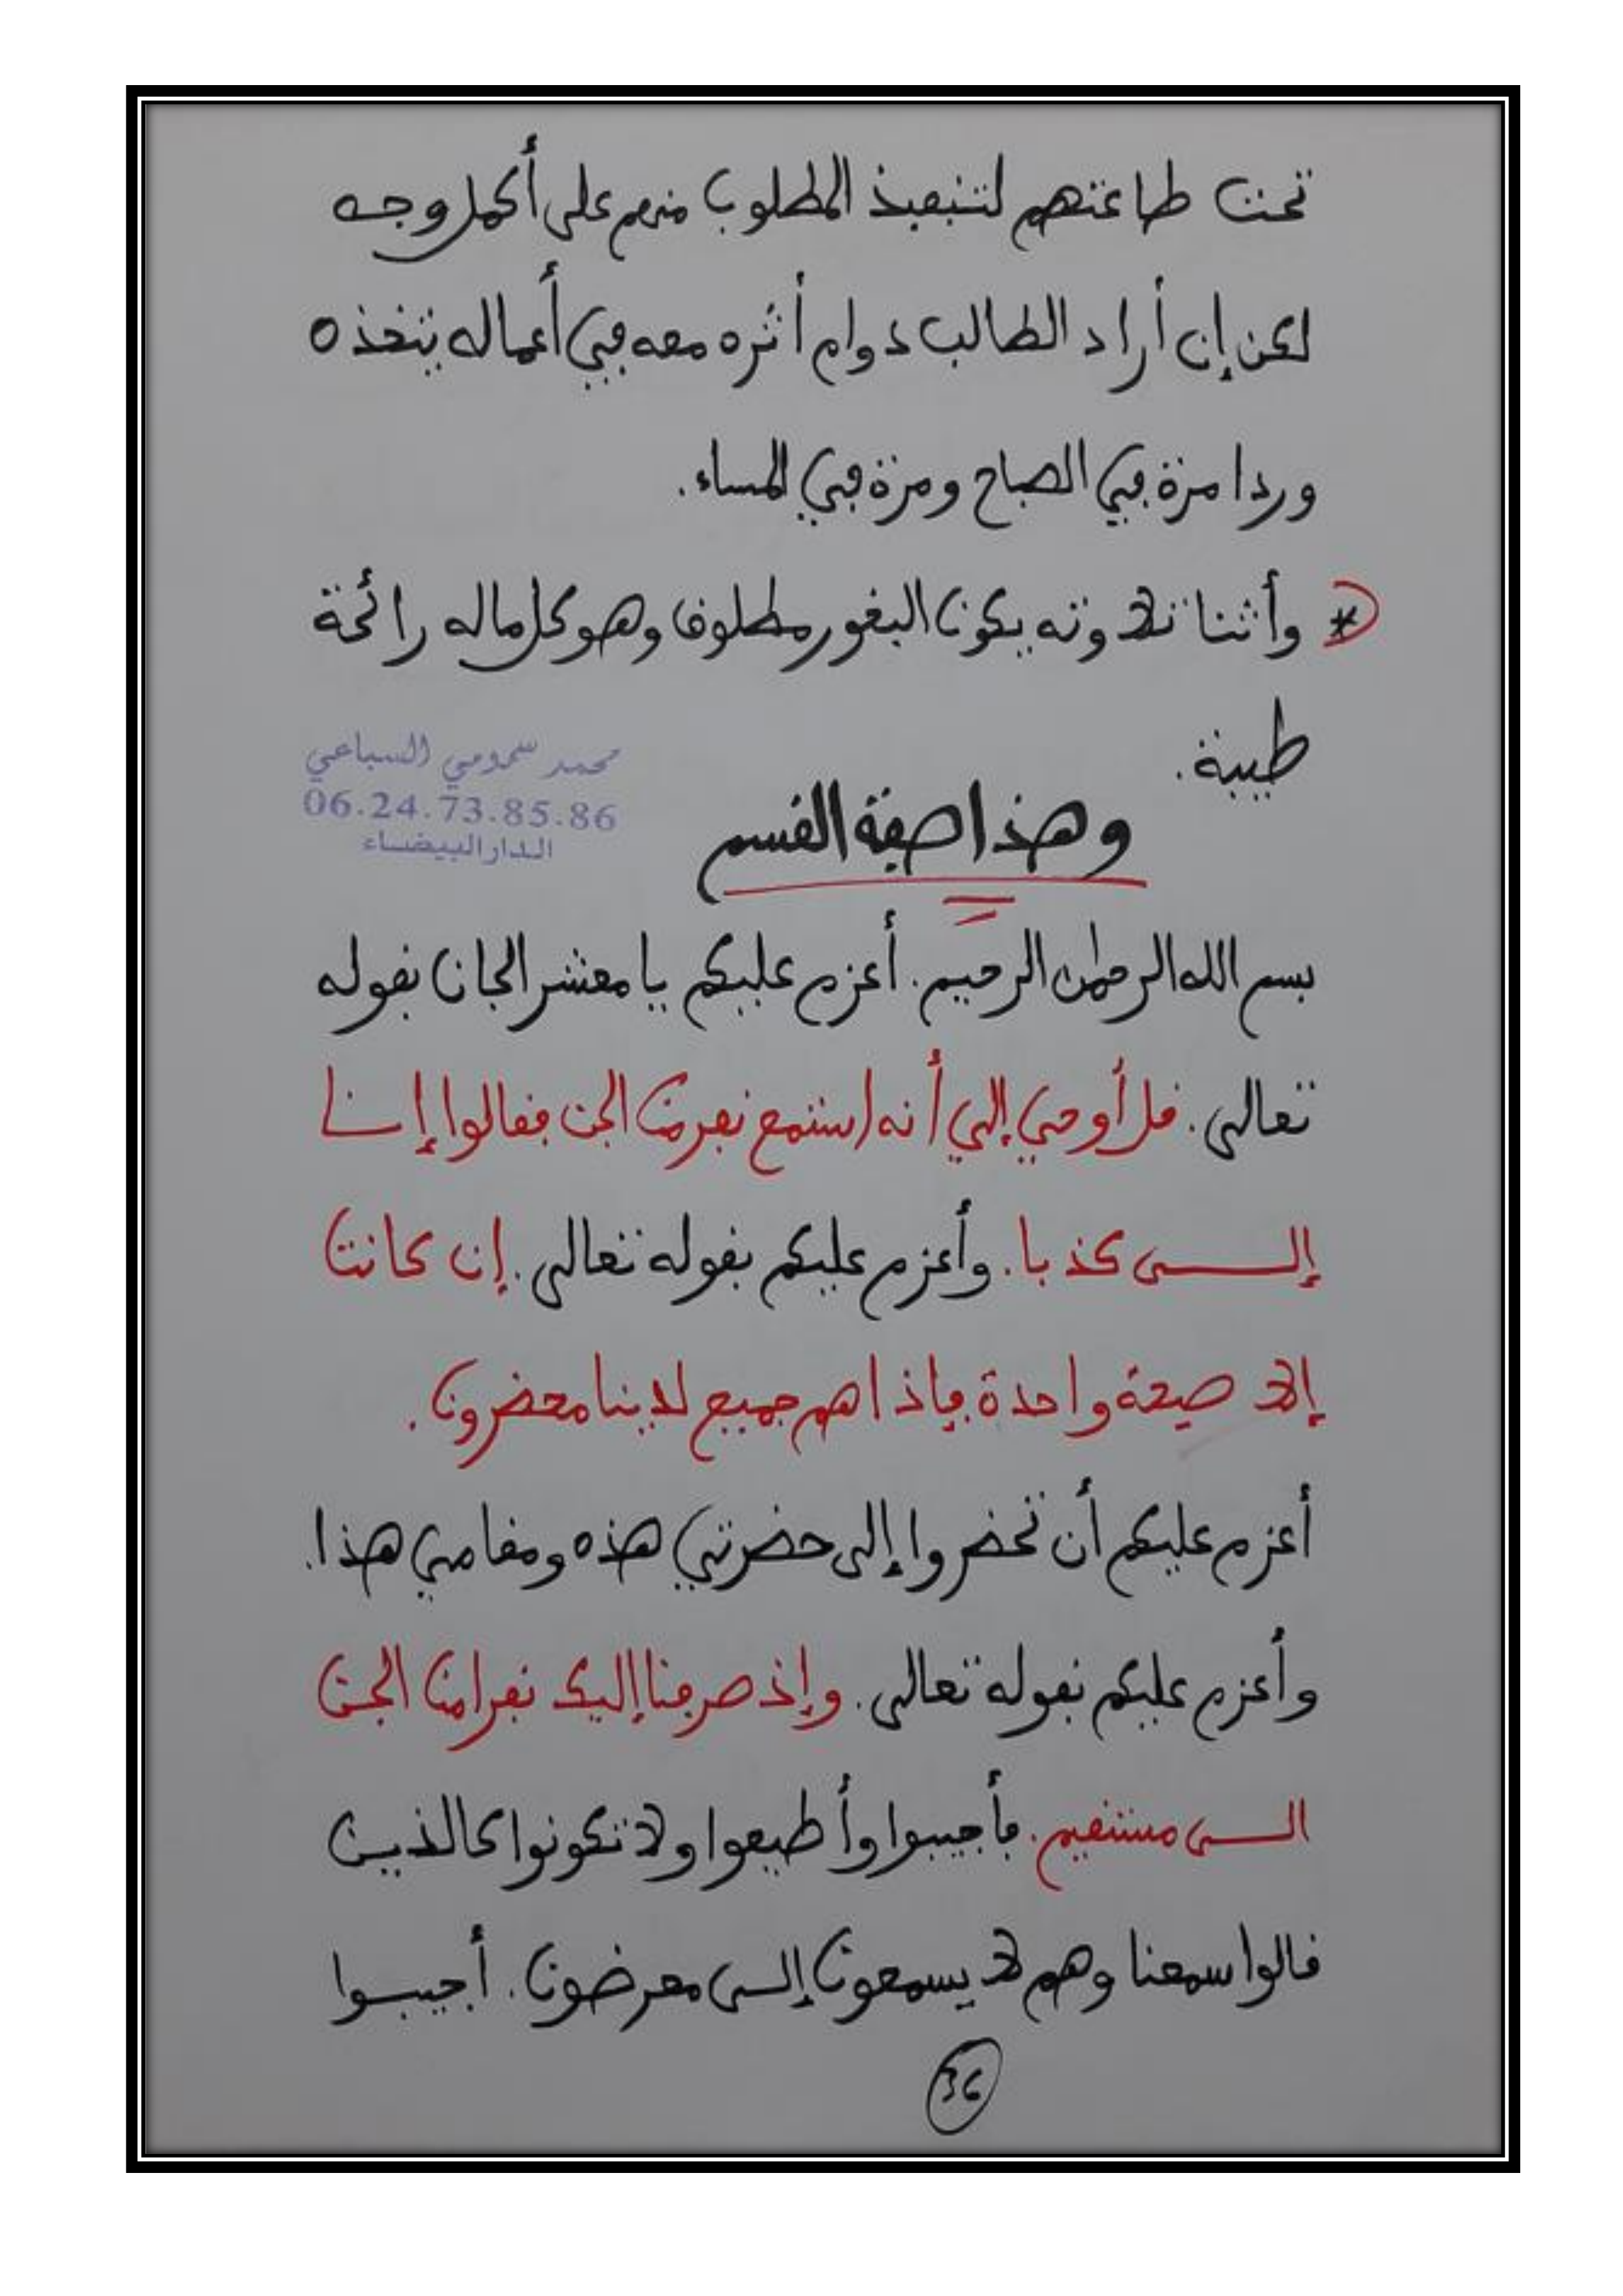 تحت طاعتهم لتنفيذ المطلوب منهم على أكمل وجه
لكن إن أراد الطالب دوام أثره معه في أعماله يتخذه
وردا مرة في الصباح ومرة في المساء.
* وأثنا تلاوته يكون البخور مطلوق وهو كل ماله رائحة
طيبة.
محمد سمومي السباعي
06.24.73.85.86
الدار البيضاء
وهذا صفة القسم
بسم الله الرحمٰن الرحيم. أعزم عليكم يا معشر الجان بقوله
تعالى. قل أوحي إلي أنه استمع نفر من الجن فقالوا إنـــا
إلـــــى كذبا. وأعزم عليكم بقوله تعالى. إن كانت
إلا صيحة واحدة فإذا هم جميع لدينا محضرون.
أعزم عليكم أن تحضروا إلى حضرتي هذه ومقامي هذا.
وأعزم عليكم بقوله تعالى. وإذ صرفنا إليك نفرا من الجن
الــــى مستقيم. فأجيبوا وأطيعوا ولا تكونوا كالذيـن
قالوا سمعنا وهم لا يسمعون إلــى معرضون. أجيبــوا
36